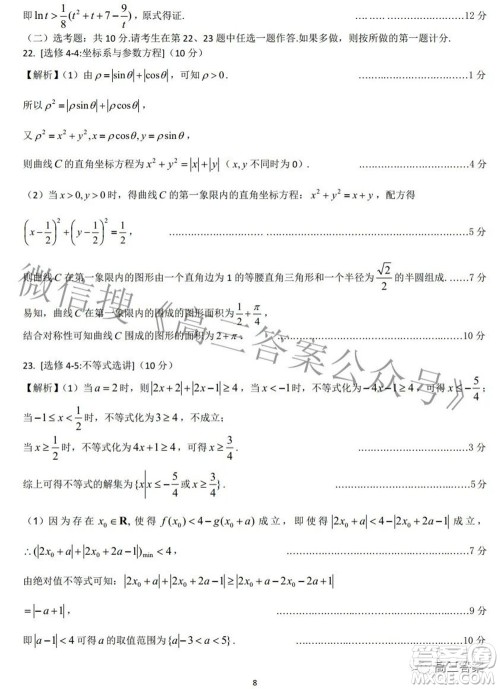 即 ln t > 1/8 (t² + t + 7 − 9/t)，原式得证. ……………12 分
（二）选考题：共 10 分.请考生在第 22、23 题中任选一题作答.如果多做，则按所做的第一题计分.
22. [选修 4-4:坐标系与参数方程]（10 分）
【解析】（1）由 ρ = |sinθ| + |cosθ|，可知 ρ > 0． ……………1 分
所以 ρ² = |ρ sinθ| + |ρ cosθ|，
又 ρ² = x² + y², x = ρ cosθ, y = ρ sinθ，
则曲线 C 的直角坐标方程为 x² + y² = |x| + |y|（x, y 不同时为 0）． ……………4 分
（2）当 x > 0, y > 0 时，得曲线 C 的第一象限内的直角坐标方程：x² + y² = x + y，配方得
(x − 1/2)² + (y − 1/2)² = 1/2， ……………5 分
则曲线 C 在第一象限内的图形由一个直角边为 1 的等腰直角三角形和一个半径为 √2/2 的半圆组成. ……7 分
易知，曲线 C 在第一象限内围成的图形面积为 1/2 + π/4，
结合对称性可知曲线 C 围成的图形面积为 2 + π. ……………10 分
23. [选修 4-5:不等式选讲]（10 分）
【解析】（1）当 a = 2 时，则 |2x + 2| + |2x − 1| ≥ 4，当 x < −1 时，不等式化为 −4x − 1 ≥ 4，可得 x ≤ −5/4；
当 −1 ≤ x < 1/2 时，不等式化为 3 ≥ 4，不成立；
当 x ≥ 1/2 时，不等式化为 4x + 1 ≥ 4，可得 x ≥ 3/4．
综上可得不等式的解集为 {x | x ≤ −5/4 或 x ≥ 3/4}． ……………5 分
（1）因为存在 x₀ ∈ R, 使得 f(x₀) < 4 − g(x₀ + a) 成立，即使得 |2x₀ + a| < 4 − |2x₀ + 2a − 1| 成立，
∴ (|2x₀ + a| + |2x₀ + 2a − 1|)min < 4， ……………7 分
由绝对值不等式可知：|2x₀ + a| + |2x₀ + 2a − 1| ≥ |2x₀ + a − 2x₀ − 2a + 1|
= |−a + 1|， ……………9 分
即 |a − 1| < 4 可得 a 的取值范围为 {a | −3 < a < 5}． ……………10 分
8
微信搜《高三答案公众号》
高三答案